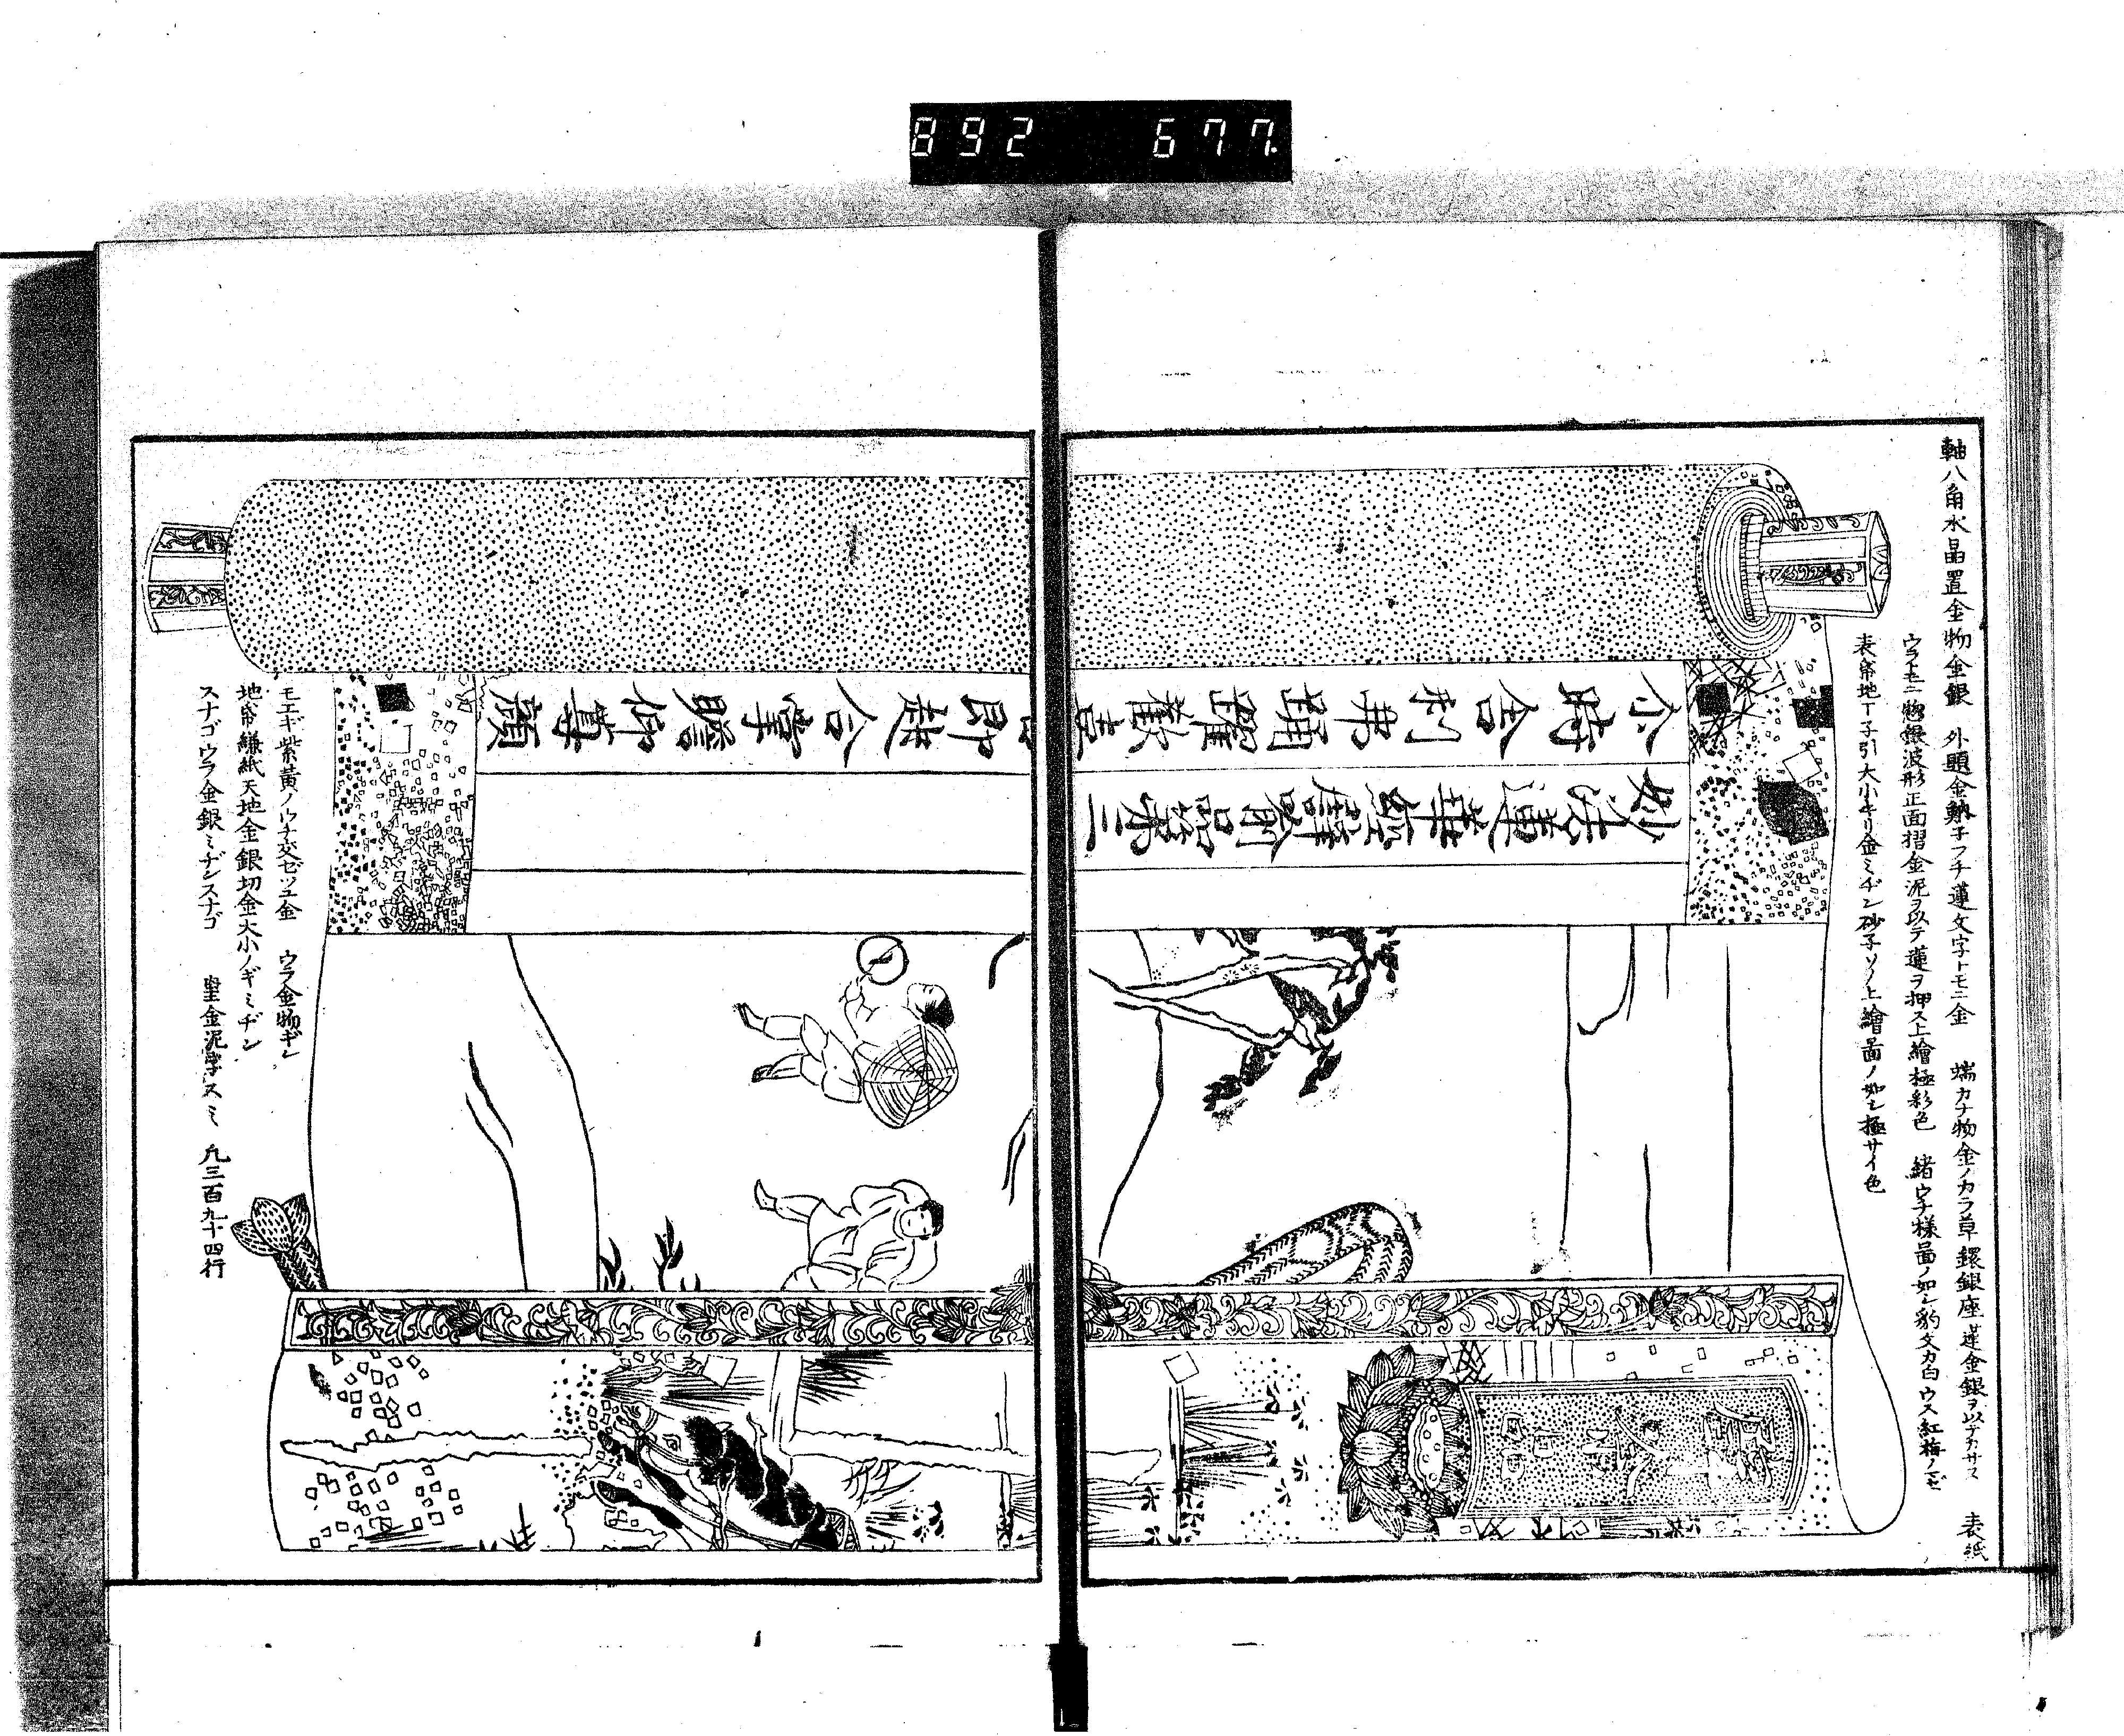 892 677.
軸八角水晶置金物金銀 外題金熟チフチ蓮文字トモニ金 端カナ物金ノカラ草鐶銀座蓮金銀ヲ以テカサス 表紙
ウラモニ惣銀波形正面摺金泥ヲ以テ蓮ヲ押ス上繪極彩色 緒ウチ様畵ノ如シ豹文カ白ウス紅梅ノゼ
表帋地丁子引大小キリ金ミヂン砂子ソノ上繪畵ノ如シ極サイ色
尒時舍利弗踊躍歡喜
即起合掌瞻仰尊顏
妙法蓮華經譬喻品第三
モエギ紫黄ノウチ交ゼツユ金 ウラ金物ギン
地帋縑紙天地金銀切金大小ノギミヂン
スナゴウラ金銀ミヂンスナゴ 罫金泥字スミ 凡三百九十四行